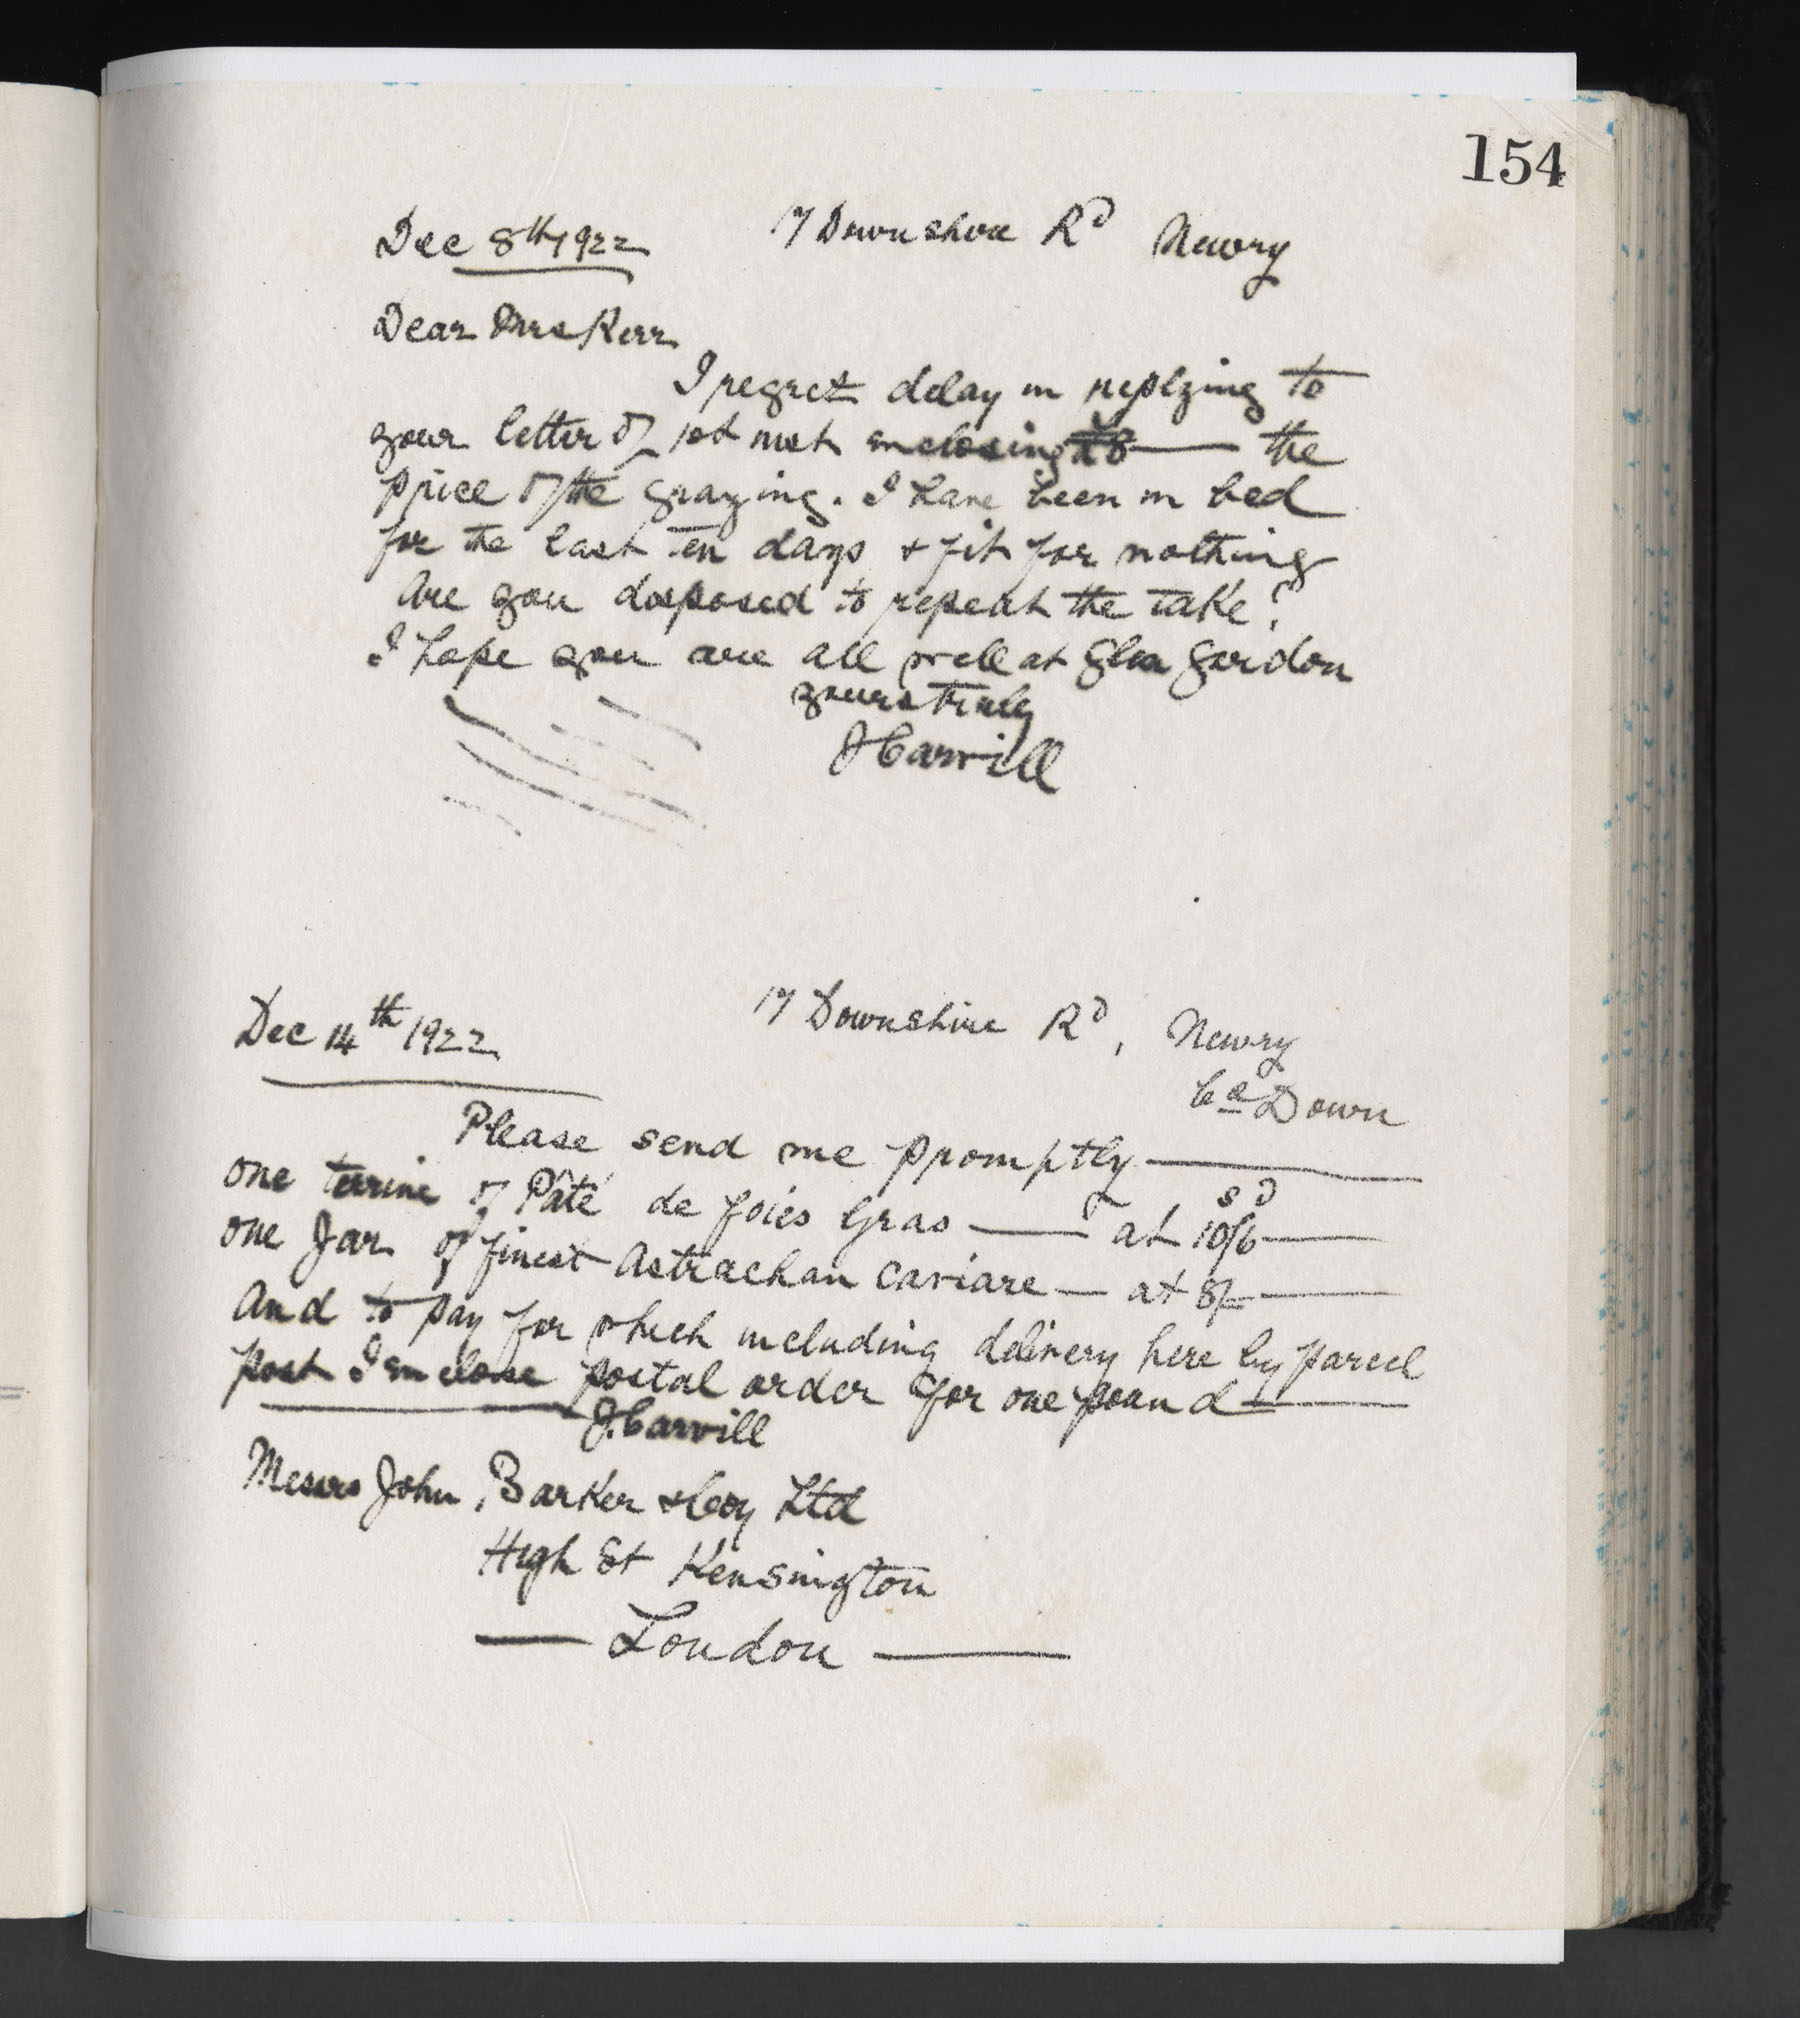 154
Dec 8th 1922 17 Downshire Rd Newry
Dear Mrs Kerr
I regret delay in replying to
your letter of 1st inst enclosing £8 — the
price of the grazing. I have been in bed
for the last ten days & fit for nothing
Are you disposed to repeat the take?
I hope you are all well at Glen Gordon
yours truly
J Carvill
Dec 14th 1922 17 Downshire Rd, Newry
Co Down
Please send me promptly —
s d
one terrine of Pâté de foies Gras — at 10/6 —
one Jar of finest Astrachan Caviare — at 8/- —
And to pay for which including delivery here by parcel
post I enclose postal order for one pound —
J. Carvill
Messrs John Barker & Coy Ltd
High St Kensington
— London —